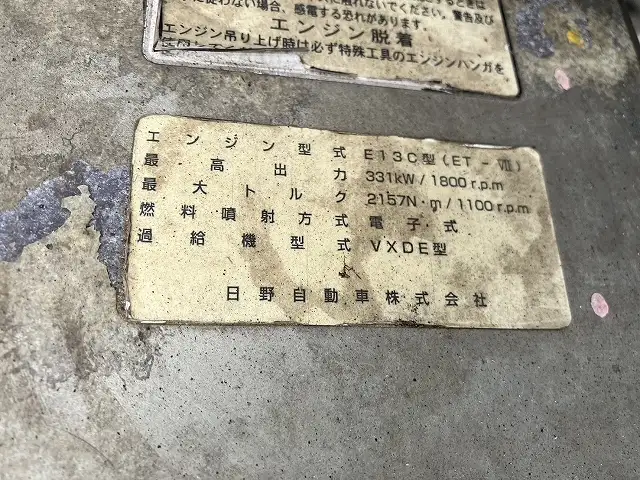 に従わない場合、感電する恐れがあります。警告及び
エンジン脱着
エンジン吊り上げ時は必ず特殊工具のエンジンハンガを
エンジン型式 E13C型(ET-Ⅷ)
最高出力 331kW/1800r.p.m
最大トルク 2157N・m/1100r.p.m
燃料噴射方式 電子式
過給機型式 VXDE型
日野自動車株式会社